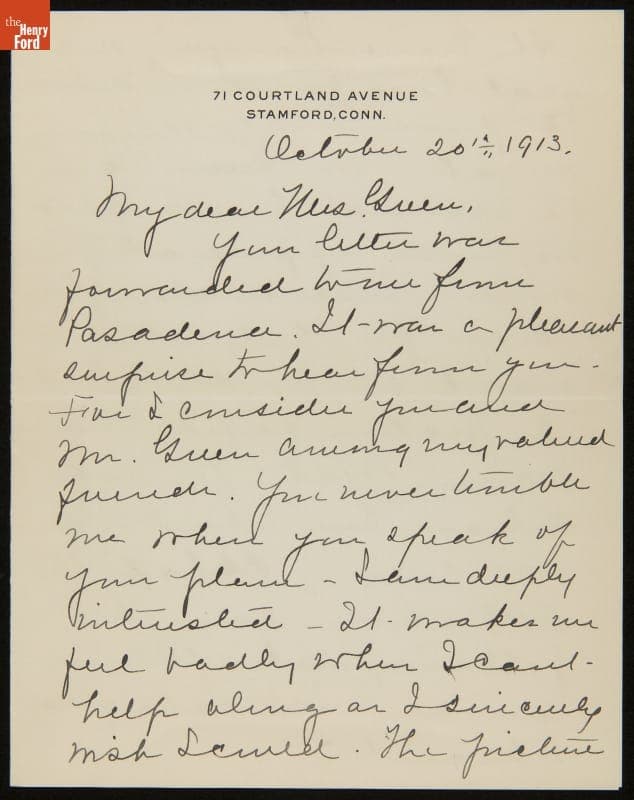 the
Henry
Ford
71 COURTLAND AVENUE
STAMFORD, CONN.
October 20th, 1913.
My dear Mrs. Green,
Your letter was
forwarded to me from
Pasadena. It was a pleasant
surprise to hear from you.
For I consider you and
Mr. Green among my valued
friends. You never trouble
me when you speak of
your plans - I am deeply
interested - It makes me
feel badly when I can't
help along as I sincerely
wish I could. The picture